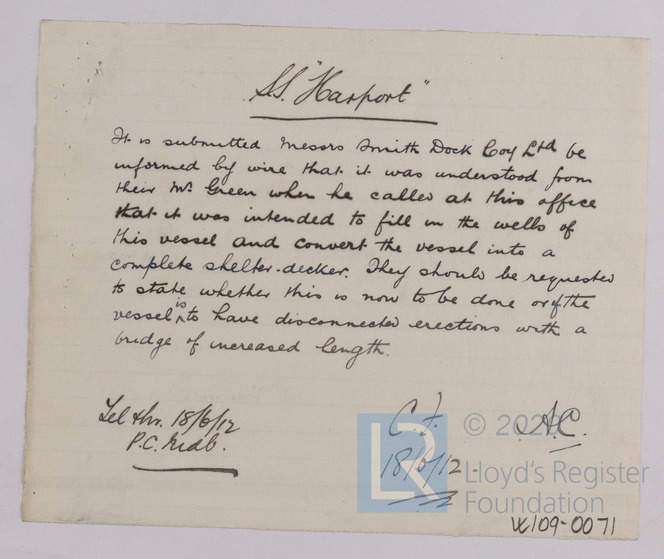 S.S. "Harport"
It is submitted Messrs Smith Dock Coy Ltd be
informed by wire that it was understood from
their Mr Green when he called at this office
that it was intended to fill in the wells of
this vessel and convert the vessel into a
complete shelter-decker. They should be requested
to state whether this is now to be done or if the
vessel is to have disconnected erections with a
bridge of increased length.
18/6/12
P.C.
18/6/12.
A.C.
© 202
Lloyd's Register
Foundation
W109-0071